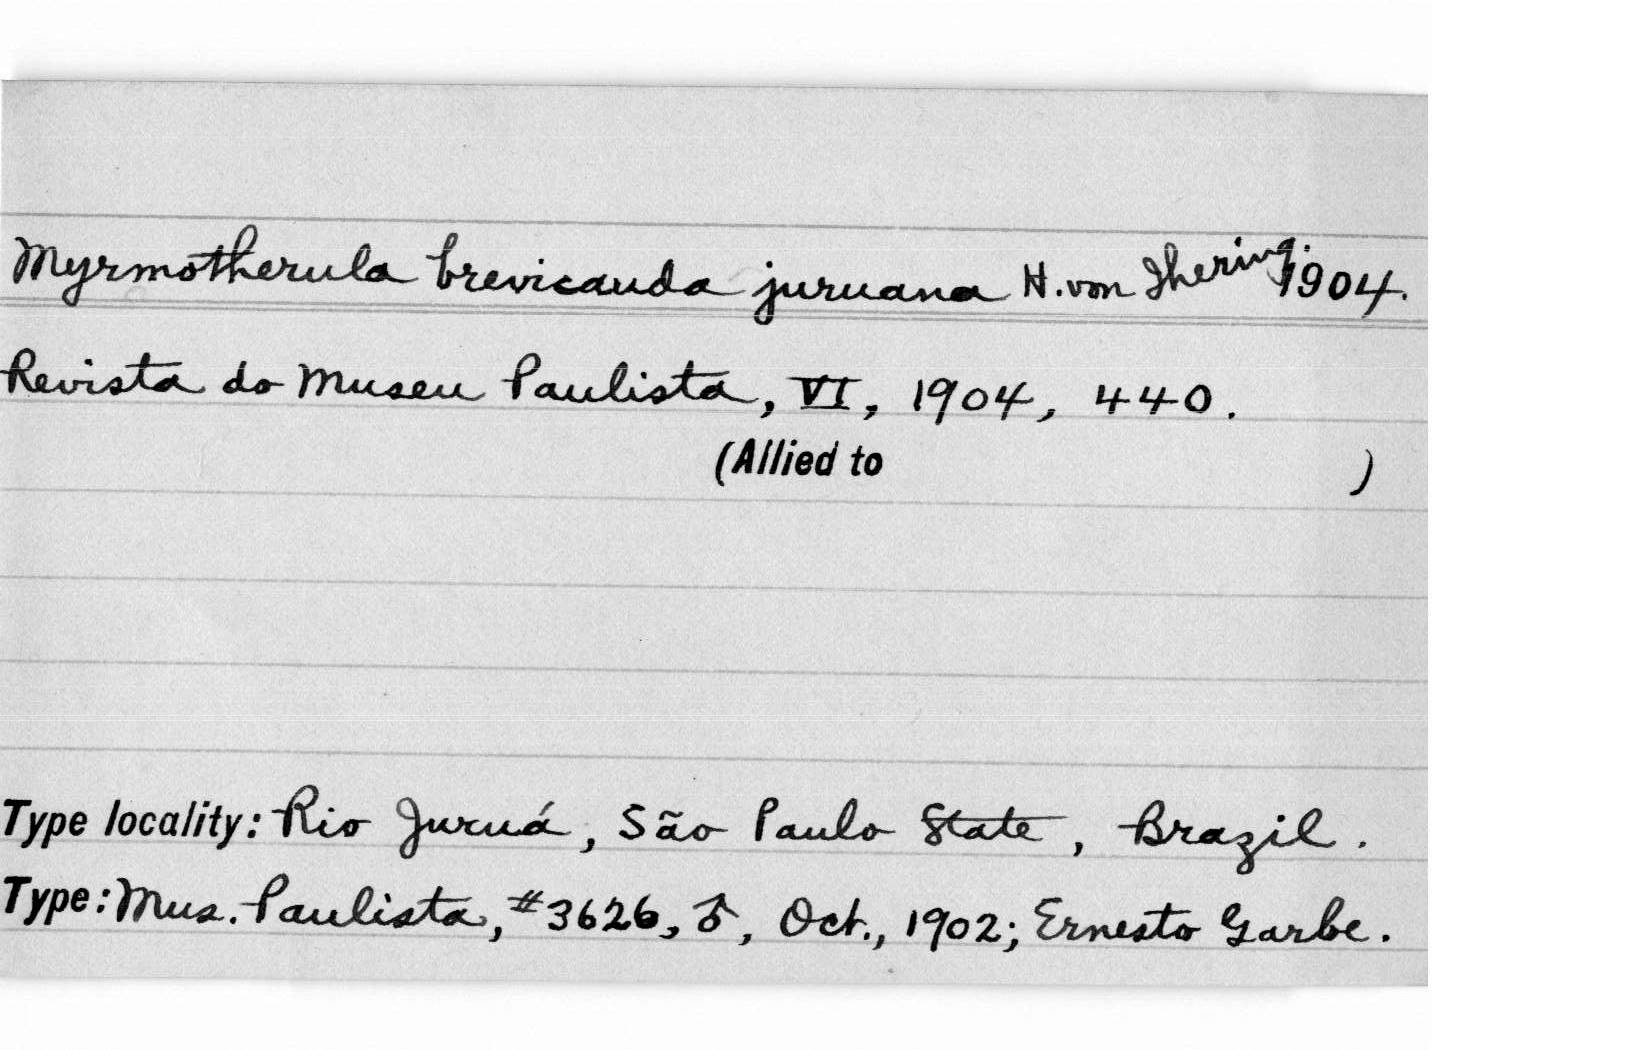 Myrmotherula brevicauda juruana H. von Ihering. 1904.
Revista do Museu Paulista, VI, 1904, 440.
(Allied to )
Type locality: Rio Juruá, São Paulo State, Brazil.
Type: Mus. Paulista, #3626, ♂, Oct., 1902; Ernesto Garbe.